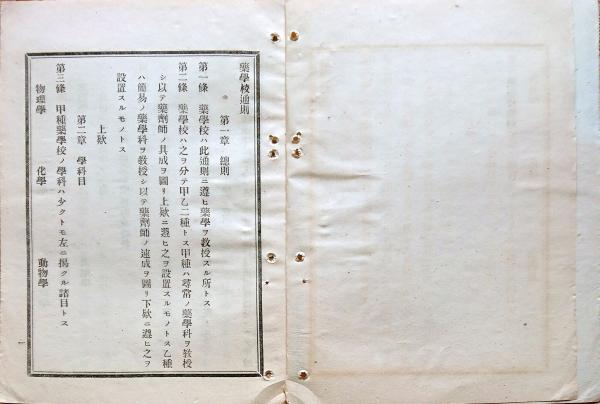 藥學校通則
第一章 總則
第一條 藥學校ハ此通則ニ遵ヒ藥學ヲ敎授スル所トス
第二條 藥學校ハ之ヲ分テ甲乙二種トス甲種ハ尋常ノ藥學科ヲ敎授
シ以テ藥劑師ノ具成ヲ圖リ上欵ニ遵ヒ之ヲ設置スルモノトス乙種
ハ簡易ノ藥學科ヲ敎授シ以テ藥劑師ノ速成ヲ圖リ下欵ニ遵ヒ之ヲ
設置スルモノトス
上欵
第二章 學科目
第三條 甲種藥學校ノ學科ハ少クトモ左ニ揭クル諸目トス
物理學 化學 動物學